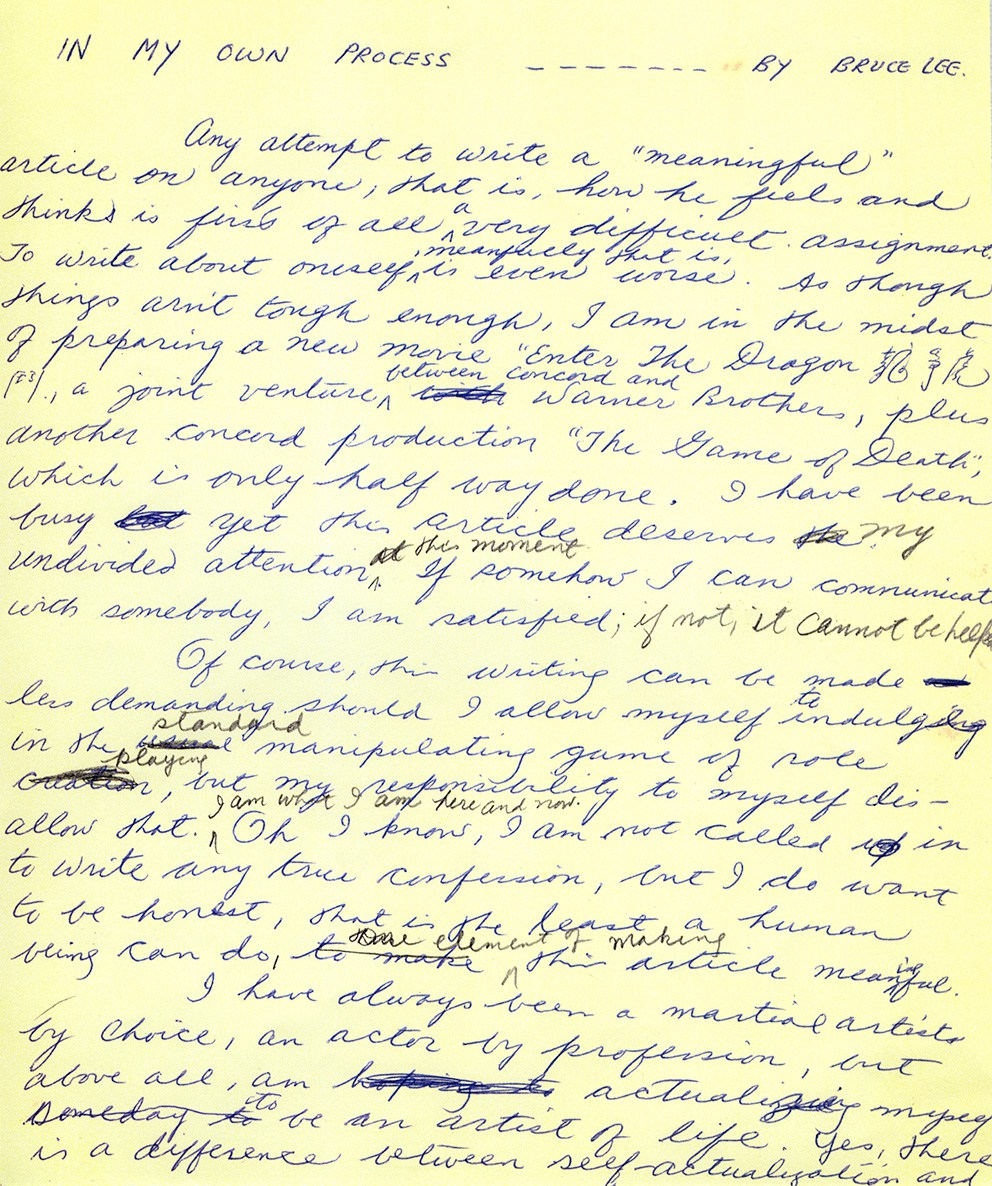 IN MY OWN PROCESS _ _ _ _ _ _ _ BY BRUCE LEE.
Any attempt to write a "meaningful"
article on anyone, that is, how he feels and
thinks is first of all a very difficult assignment.
To write about oneself, meanfuely that is, is even worse. As though
things arn't tough enough, I am in the midst
of preparing a new movie "Enter The Dragon
, a joint venture between concord and Warner Brothers, plus
another concord production "The Game of Death",
which is only half way done. I have been
busy yet this article deserves my
undivided attention at this moment. If somehow I can communicat
with somebody, I am satisfied; if not, it cannot be helpe
Of course, this writing can be made
less demanding should I allow myself to indulg
in the standard manipulating game of role
playing, but my responsibility to myself dis-
allow that. I am what I am here and now. Oh I know, I am not called in
to write any true confession, but I do want
to be honest, that is the least a human
being can do, to make One element of making this article meaningful.
I have always been a martial artists
by choice, an actor by profession, but
above all, am actualizing myself
someday to to be an artist of life. Yes, there
is a difference between self-actualization and